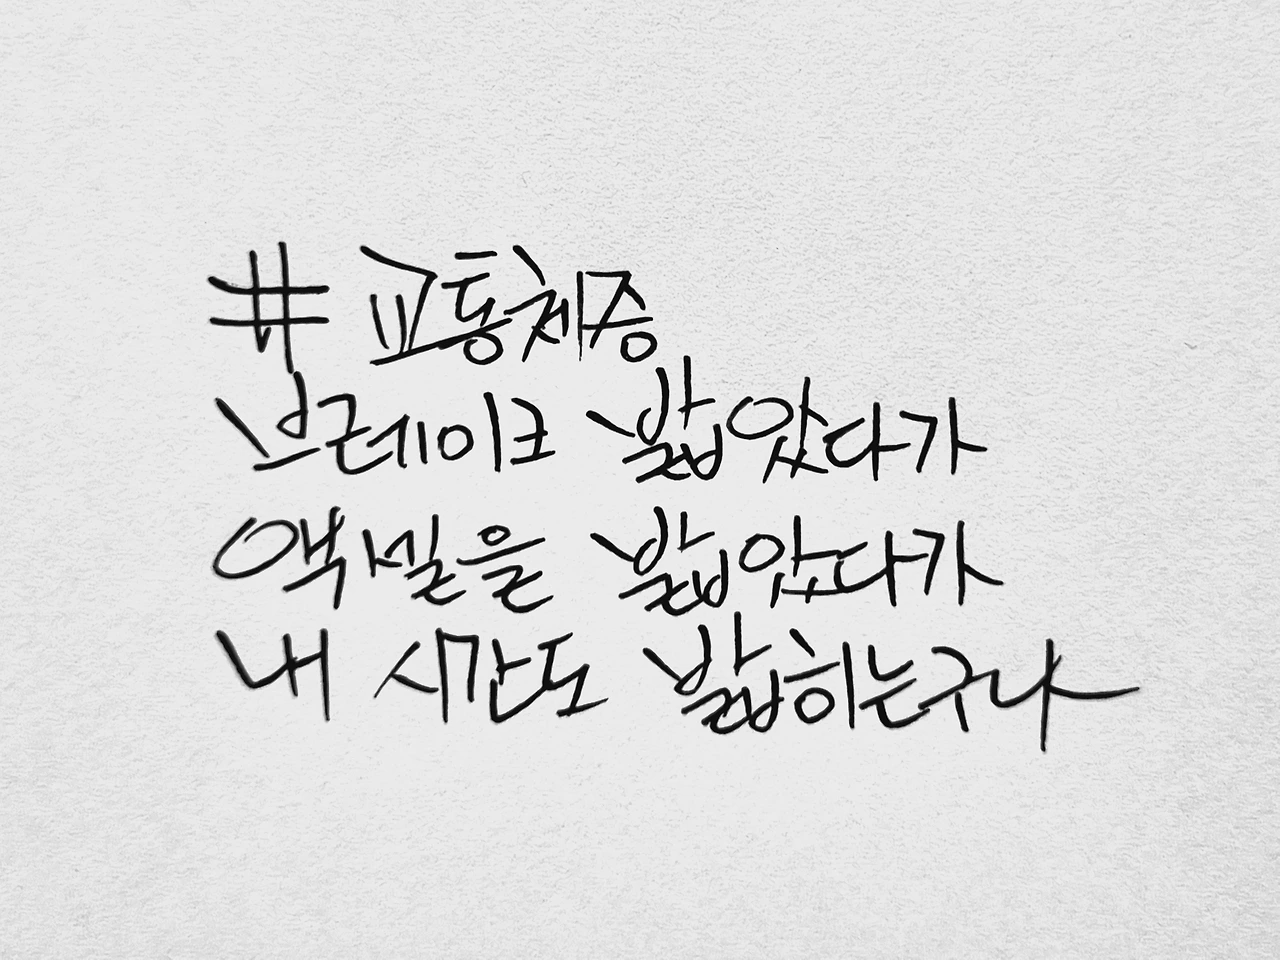 # 교통체증
브레이크 밟았다가
액셀을 밟았다가
내 시간도 밟히는구나